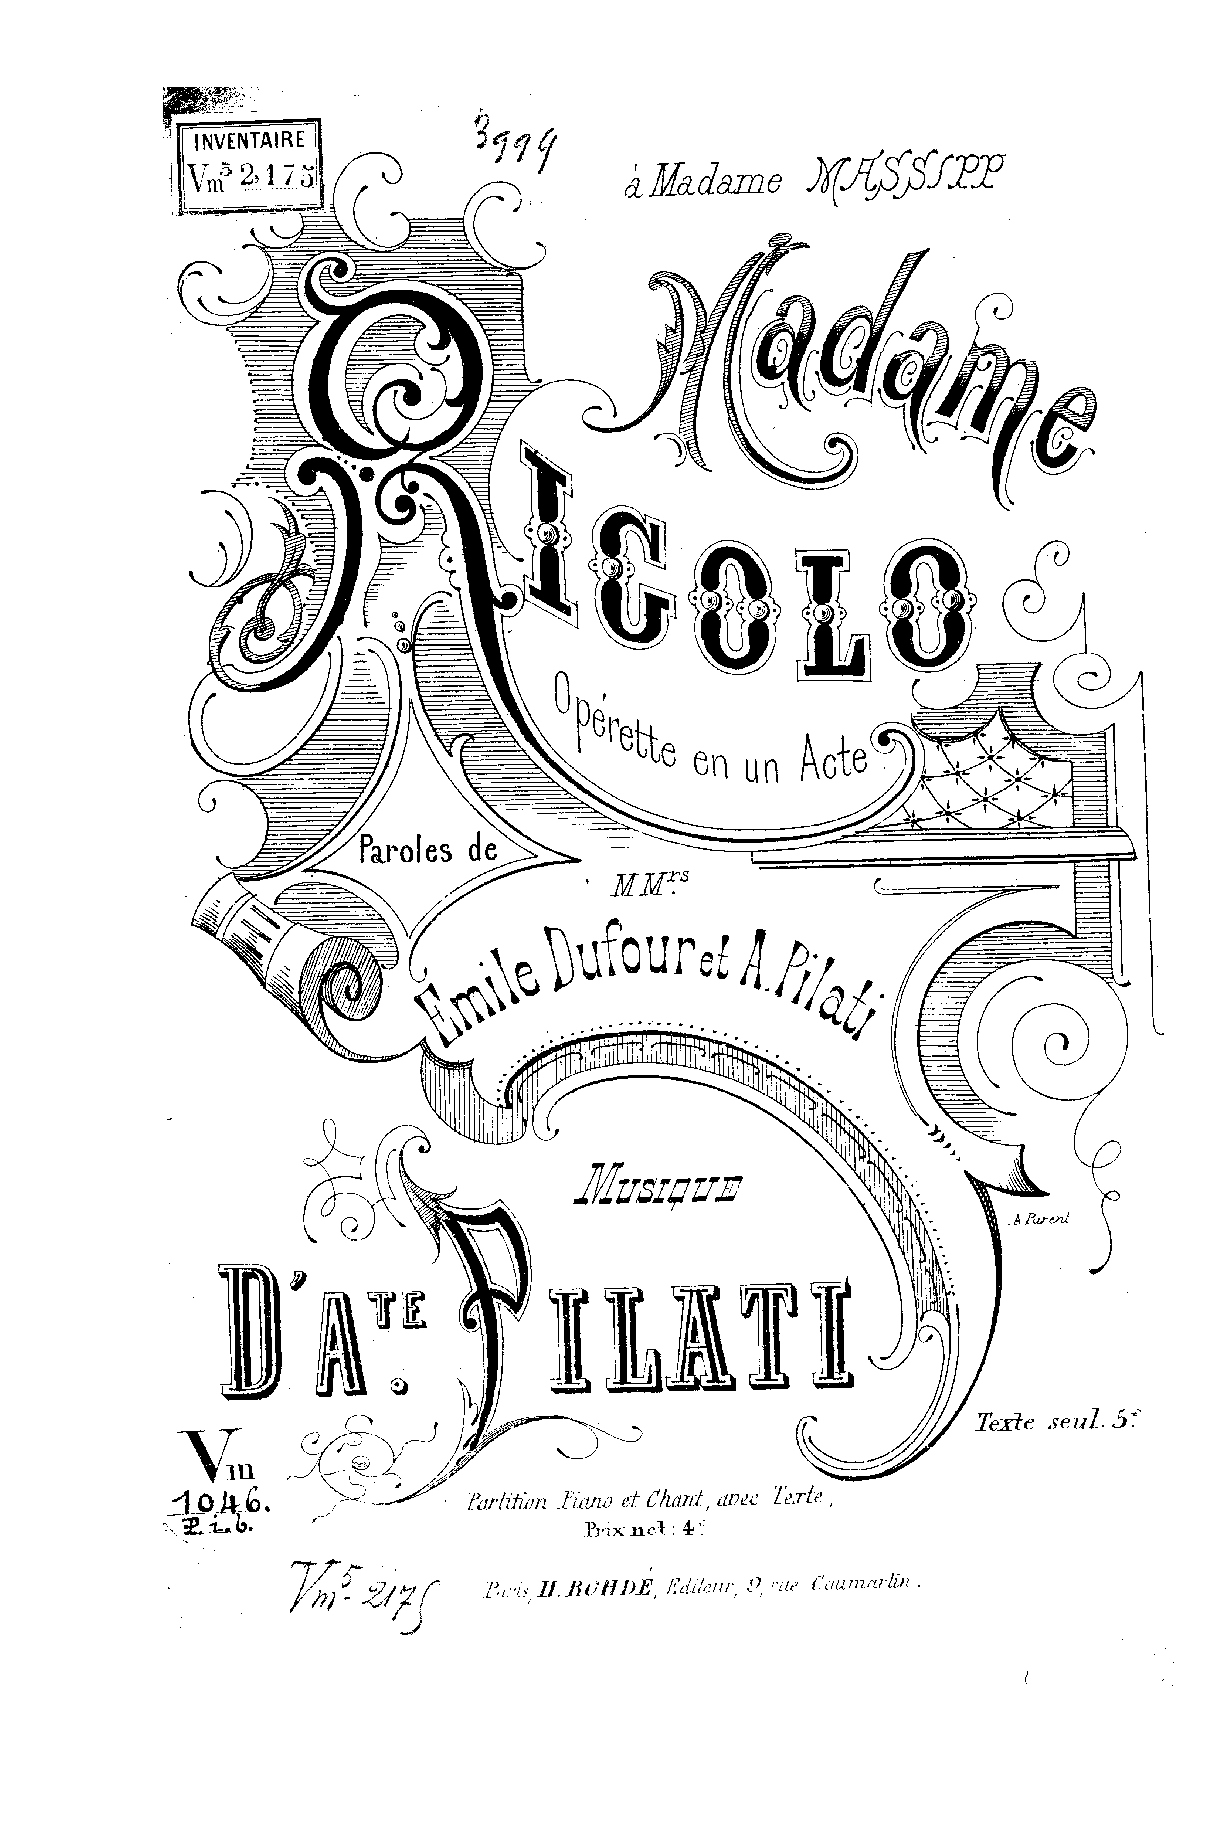 INVENTAIRE
Vm⁵ 2175
3999
à Madame MASSIPP
Madame
RIGOLO
Opérette en un Acte
Paroles de
MMrs
Emile Dufour et A. Pilati
Musique
A Parent
D'ATE. PILATI
Texte seul. 5f
Vm
1046.
Partition Piano et Chant, avec Texte,
Prix net : 4f
Vm⁵ 2175
Paris, H. ROHDÉ, Editeur, 9, rue Caumartin.